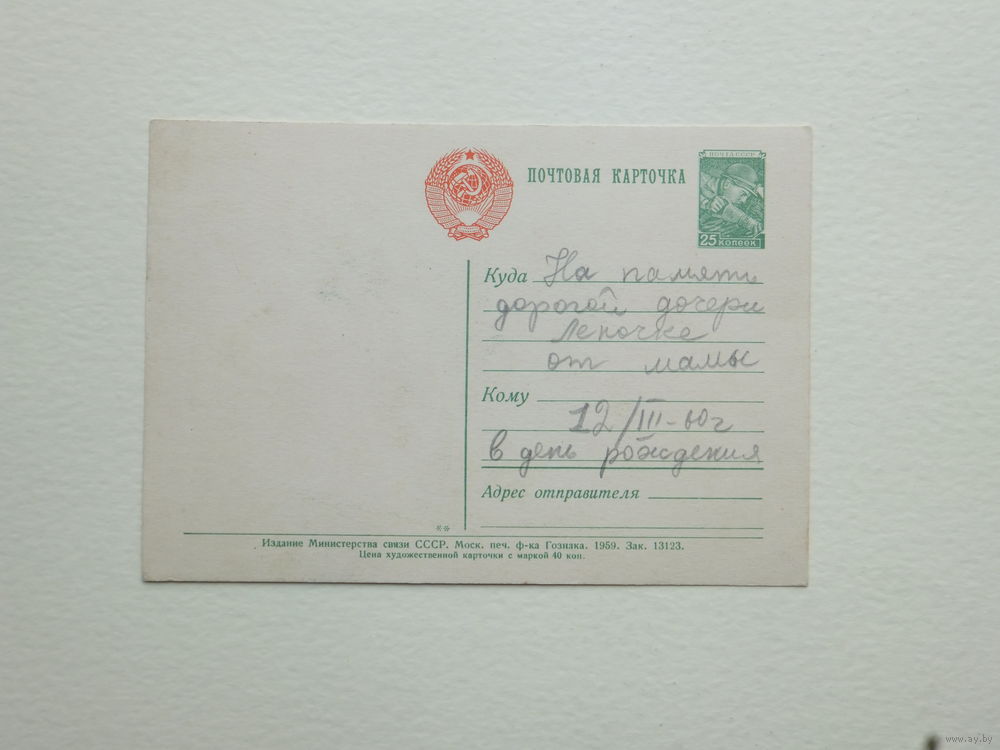 ПОЧТОВАЯ КАРТОЧКА
ПОЧТА СССР
25 копеек
Куда На памяти
дорогой дочери
Леночке
от мамы
Кому
12/III-60г
в день рождения
Адрес отправителя
**
Издание Министерства связи СССР. Моск. печ. ф-ка Гознака. 1959. Зак. 13123.
Цена художественной карточки с маркой 40 коп.
www.ay.by